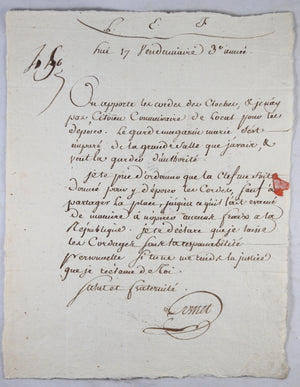 L. E. F.
hui 17 Vendemiaire 3e année
On apporte les cordes des Cloches, & je n'ay
pas, Citoïen Commissaire de local pour les
déposer. Le garde magasin s'est
emparé de la grande Salle que j'avais &
veut la garder d'authorité.
Je te prie d'ordonner que la Clef me soit
donnée pour y déposer les Cordes, sauf à
partager la place, jusqu'à ce qu'il soit avisé
de manière à n'opérer aucuns fraix a la
République. Je te déclare que je laisse
les Cordages sous ta responsabilité
personnelle Si tu ne me rends la justice
que je réclame de toi.
Salut et fraternité.